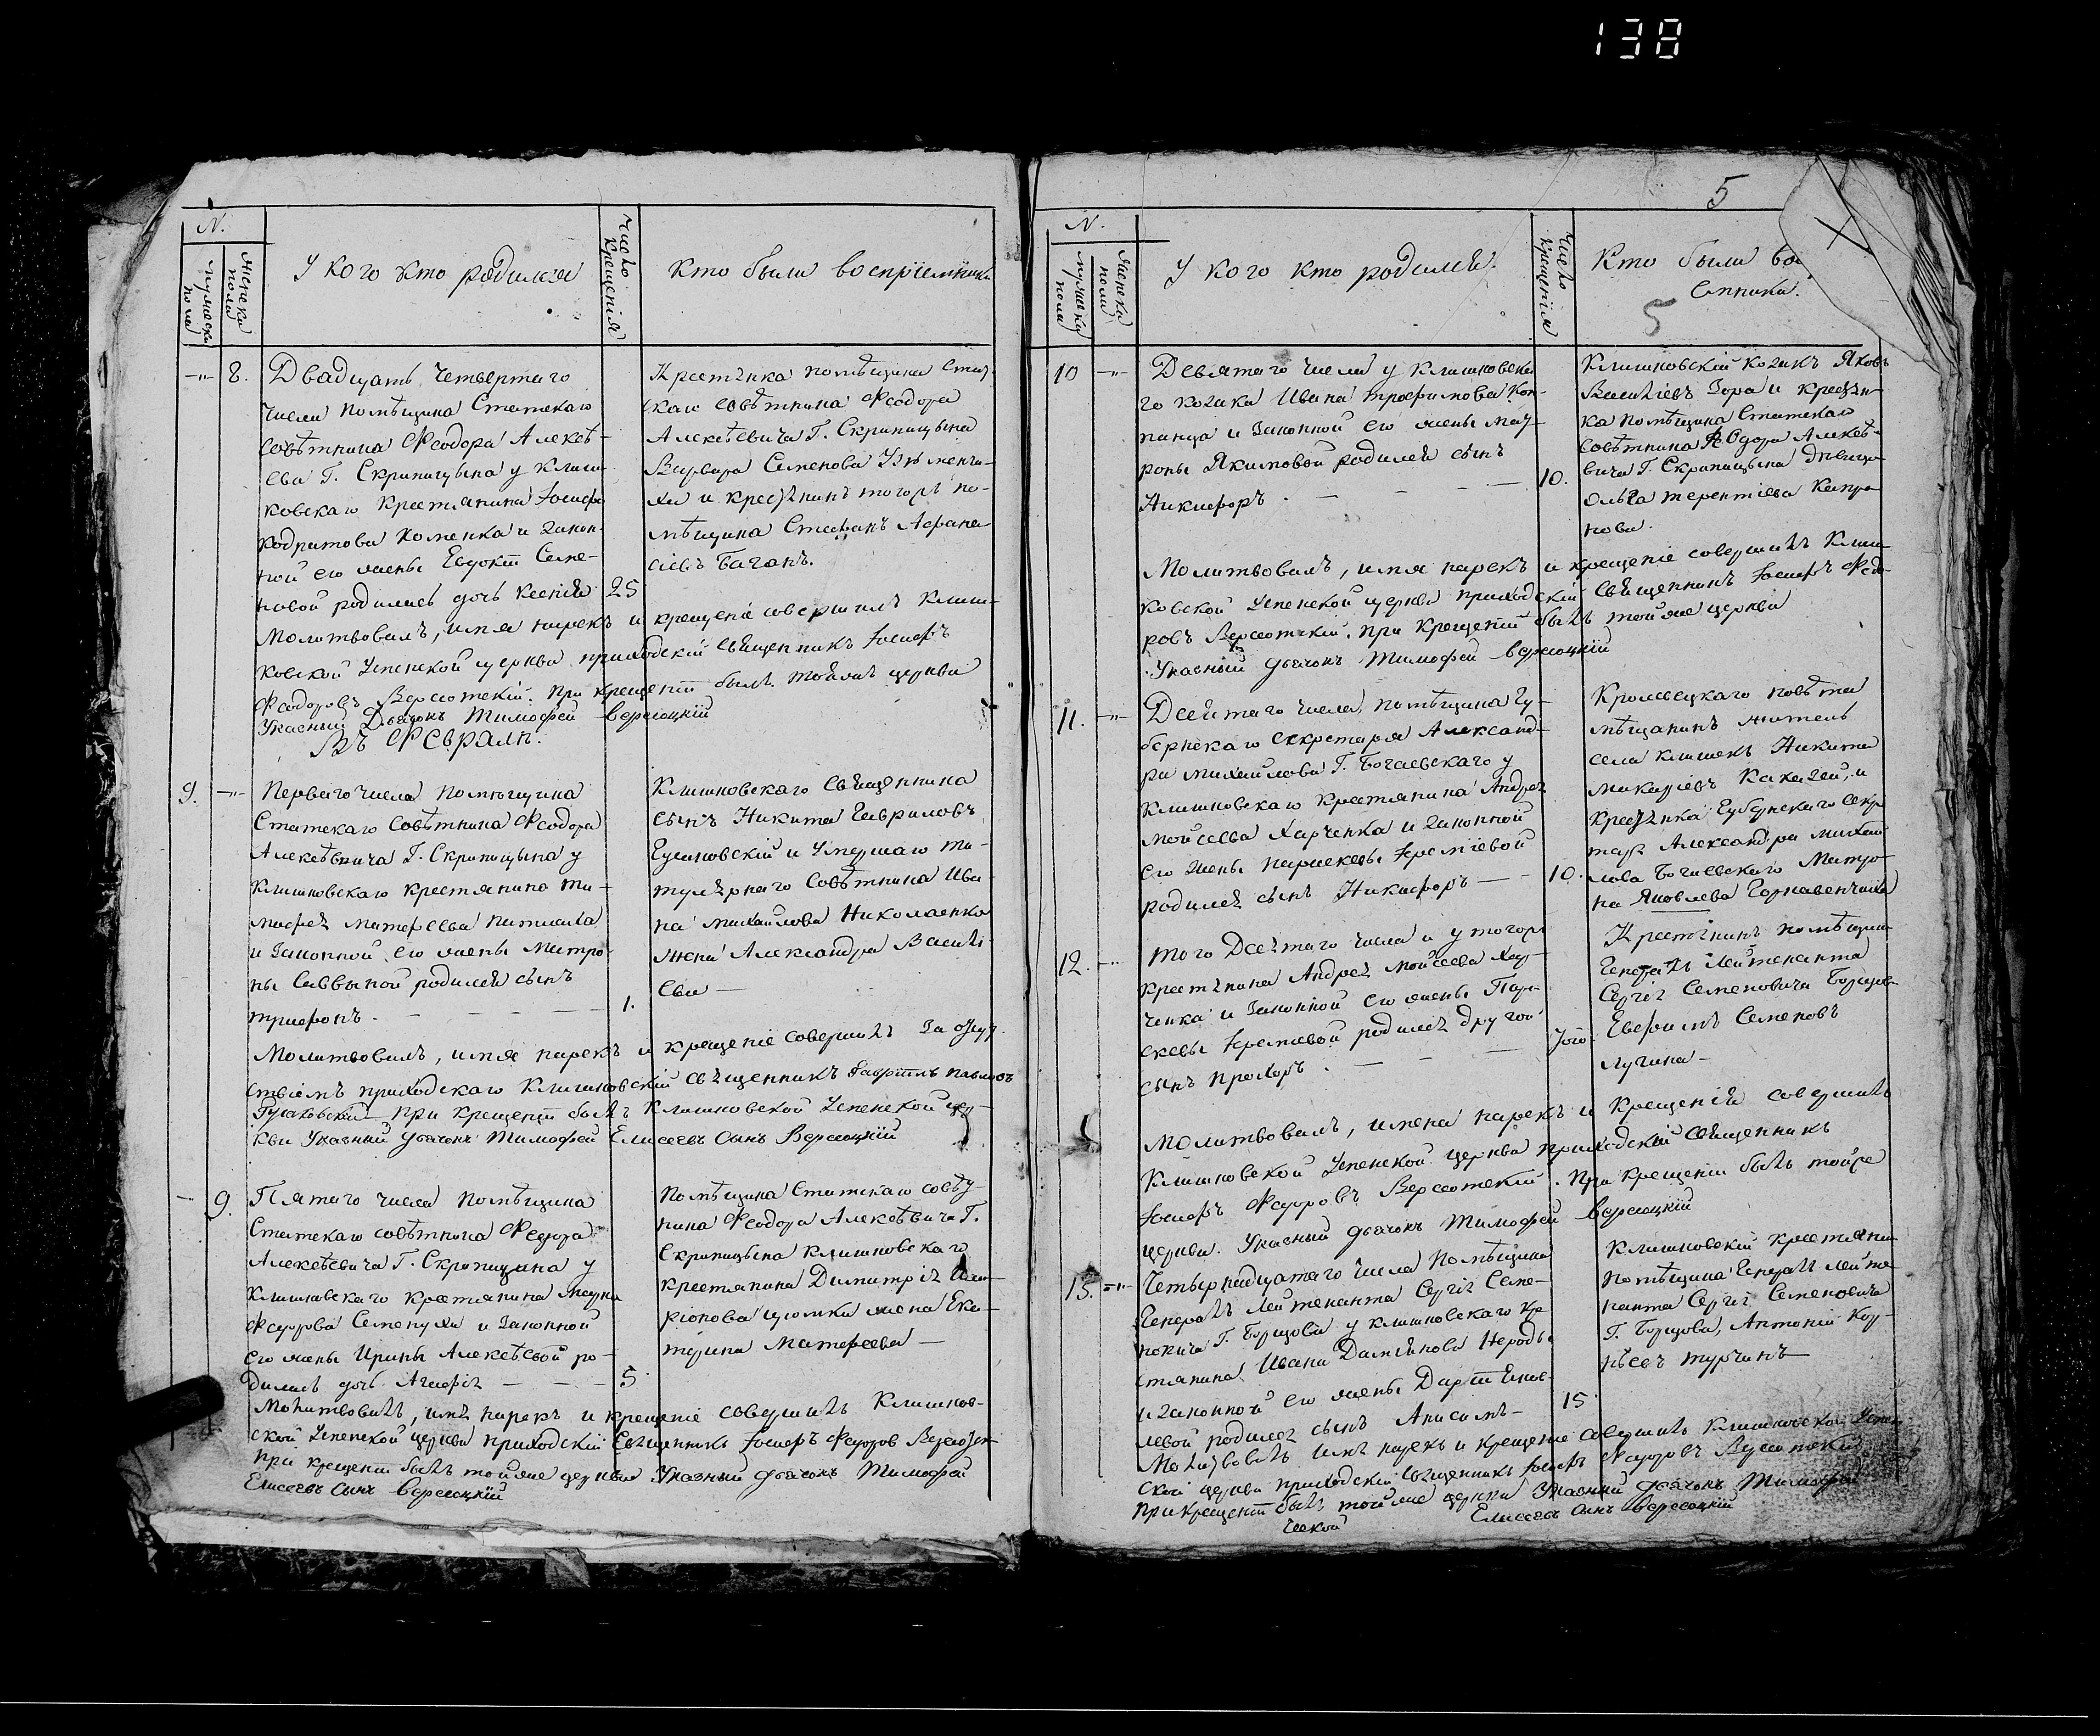 138
N.
мужеска пола
женска пола
У кого кто родился
Число крещенія
Кто были воспріемники
-"- 8.
Двадцать четвертаго
числа помѣщика Статскаго
Совѣтника Феодора Алексѣ-
ева Г. Скрипицына у Клиш-
ковскаго крестьянина Іосифа
Кодратова Хоменка и закон-
ной его жены Евдокіи Семе-
новой родилась дочь Ксенія 25
Крестянка помѣщика Стат-
скаго Совѣтника Феодора
Алексѣевича Г. Скрипицына
Варвара Семенова
ха и крестянинъ тогожъ по-
мѣщика Стефанъ Афана-
сіевъ Баганъ.
Молитвовалъ, имя нарекъ и крещеніе совершилъ Клиш-
ковской Успенской церкви приходскій священникъ Іосифъ
Феодоровъ Вересотскій. При крещеніи былъ тойже церкви
Указный Дьячокъ Тимофей Вересоцкій
Въ Февралѣ.
9. -"-
Перваго числа помѣщика
Статскаго Совѣтника Феодора
Алексѣевича Г. Скрипицына у
Клишковскаго крестьянина Ти-
мофея Матфеева
и законной его жены Матро-
ны Саввиной родился сынъ
Трифонъ. — — — — 1.
Клишковскаго Священника
сынъ Никита Гавриловъ
и умершаго Ти-
тулярнаго Совѣтника Ива-
на Михайлова Николаенка
жена Александра Василі-
ева —
Молитвовалъ, имя нарекъ и крещеніе совершилъ за отсут-
ствіемъ приходскаго Клишковскій священникъ Гавріилъ Павловъ
При крещеніи былъ Клишковской Успенской цер-
кви Указный дьячокъ Тимофей Елисеевъ сынъ Вересоцкій
— 9.
Пятаго числа помѣщика
Статскаго совѣтника Федора
Алексѣевича Г. Скрипицына у
Клишковскаго крестянина
Федорова Семенухи и законной
его жены Ирины Алексѣевой ро-
дилась дочь Агафія — — — 5.
Помѣщика Статскаго совѣт-
ника Феодора Алексѣевича Г.
Скрипицына Клишковскаго
крестянина Димитрія Ила-
ріонова жена Ека-
терина Матфеева —
Молитвовалъ, имя нарекъ и крещеніе совершилъ Клишков-
ской Успенской церкви приходскій Священникъ Іосифъ Федоров
При крещеніи былъ тойже церкви Указный дьячокъ Тимофей
Елисеевъ сынъ Вересоцкій
5
N.
мужеска пола
женска пола
У кого кто родился.
Число крещенія
Кто были вос
емники.
5
10 -"-
Девятаго числа у Клишковска-
го козака Ивана Трофимова Коп-
и законной его жены Мат-
роны Якимовой родился сынъ
Никифоръ. — — — — 10.
Клишковскій козакъ Яковъ
Василіевъ Зора и крестян-
ка помѣщика Статскаго
Совѣтника Ѳеодора Алексѣе-
вича Г. Скрипицына дѣвица
Ольга Терентіева
нова.
Молитвовалъ, имя нарекъ и крещеніе совершилъ Клиш-
ковской Успенской церкви приходскій Священникъ Іосифъ Федо-
ровъ Вересотскій. При крещеніи былъ тойже церкви
Указный дьячокъ Тимофей Вересоцкій
11. -"-
Десятаго числа помѣщика Гу-
бернскаго Секретаря Александ-
ра Михайлова Г. Богаевскаго у
Клишковскаго крестянина Андрея
Мойсеева Харченка и законной
его жены Параскевы Іереміевой
родился сынъ Никифоръ — — 10.
Кролевецкаго повѣта
мѣщанинъ житель
села Клишекъ Никита
и
крестянка Губернскаго Секре
таря Александра Михай-
лова Богаевскаго Матро-
на Яковлева
12. -"-
Того Десятаго числа и у тогожъ
крестянина Андрея Мойсеева Хар-
ченка и законной его жены Пара-
скевы Іереміевой родился другой
сынъ Прохоръ. — — — 10го.
Крестянинъ помѣщика
Генералъ Лейтенанта
Сергія Семеновича Борщова
Евфимъ Семеновъ
Лугина —
Молитвовалъ, имена нарекъ и Крещеній совершилъ
Клишковской Успенской церкви приходской священникъ
Іосифъ Федоровъ Вересотскій. При крещеніи былъ тойже
церкви. Указный дьячокъ Тимофей Вересоцкій
13. -"-
Четырнадцатаго числа помѣщика
Генералъ Лейтенанта Сергія Семе-
новича Г. Борщова у Клишковскаго кре-
стянина Ивана Дамянова
и законной его жены Даріи
левой родился сынъ Анисимъ — 15.
Клишковскій крестянин
помѣщика Генералъ Лейте-
нанта Сергія Семеновича
Г. Борщова, Антоній Кор-
нѣевъ Турчинъ —
Молитвовалъ имя нарекъ и крещеніе совершилъ Клишковской Успен
ской церкви приходскій священникъ Іосифъ Федоровъ Вересотскій
При крещеніи былъ тойже церкви Указный дьячокъ Тимофей
Елисеевъ сынъ Вересоцкій